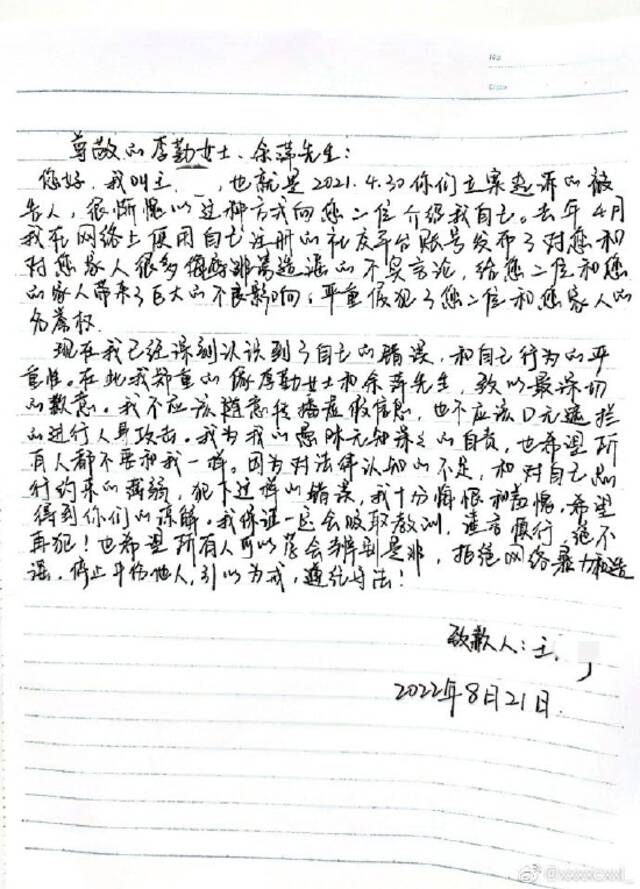 No
Date
尊敬的李勤女士、余萍先生：
您好，我叫王 ，也就是2021.4.30你们立案起诉的被
告人，很惭愧以这种方式向您二位介绍我自己。去年4月
我在网络上使用自己注册的社交平台账号发布了对您和
对您家人很多侮辱诽谤造谣的不实言论，给您二位和您
的家人带来了巨大的不良影响，严重侵犯了您二位和您家人的
名誉权.
现在我已经深刻认识到了自己的错误，和自己行为的严
重性。在此我郑重的像李勤女士和余萍先生，致以最深切
的歉意。我不应该随意传播虚假信息，也不应该口无遮拦
的进行人身攻击。我为我的愚昧无知深深的自责，也希望所
有人都不要和我一样。因为对法律认知的不足，和对自己的
行约束的薄弱，犯下这样的错误，我十分悔恨和羞愧，希望
得到你们的谅解。我保证一定会吸取教训，谨言慎行，绝不
再犯！也希望所有人可以学会辨别是非，拒绝网络暴力和造
谣，停止中伤他人，引以为戒，遵纪守法！
致歉人：王
2022年8月21日.
@xxxxcxxl_